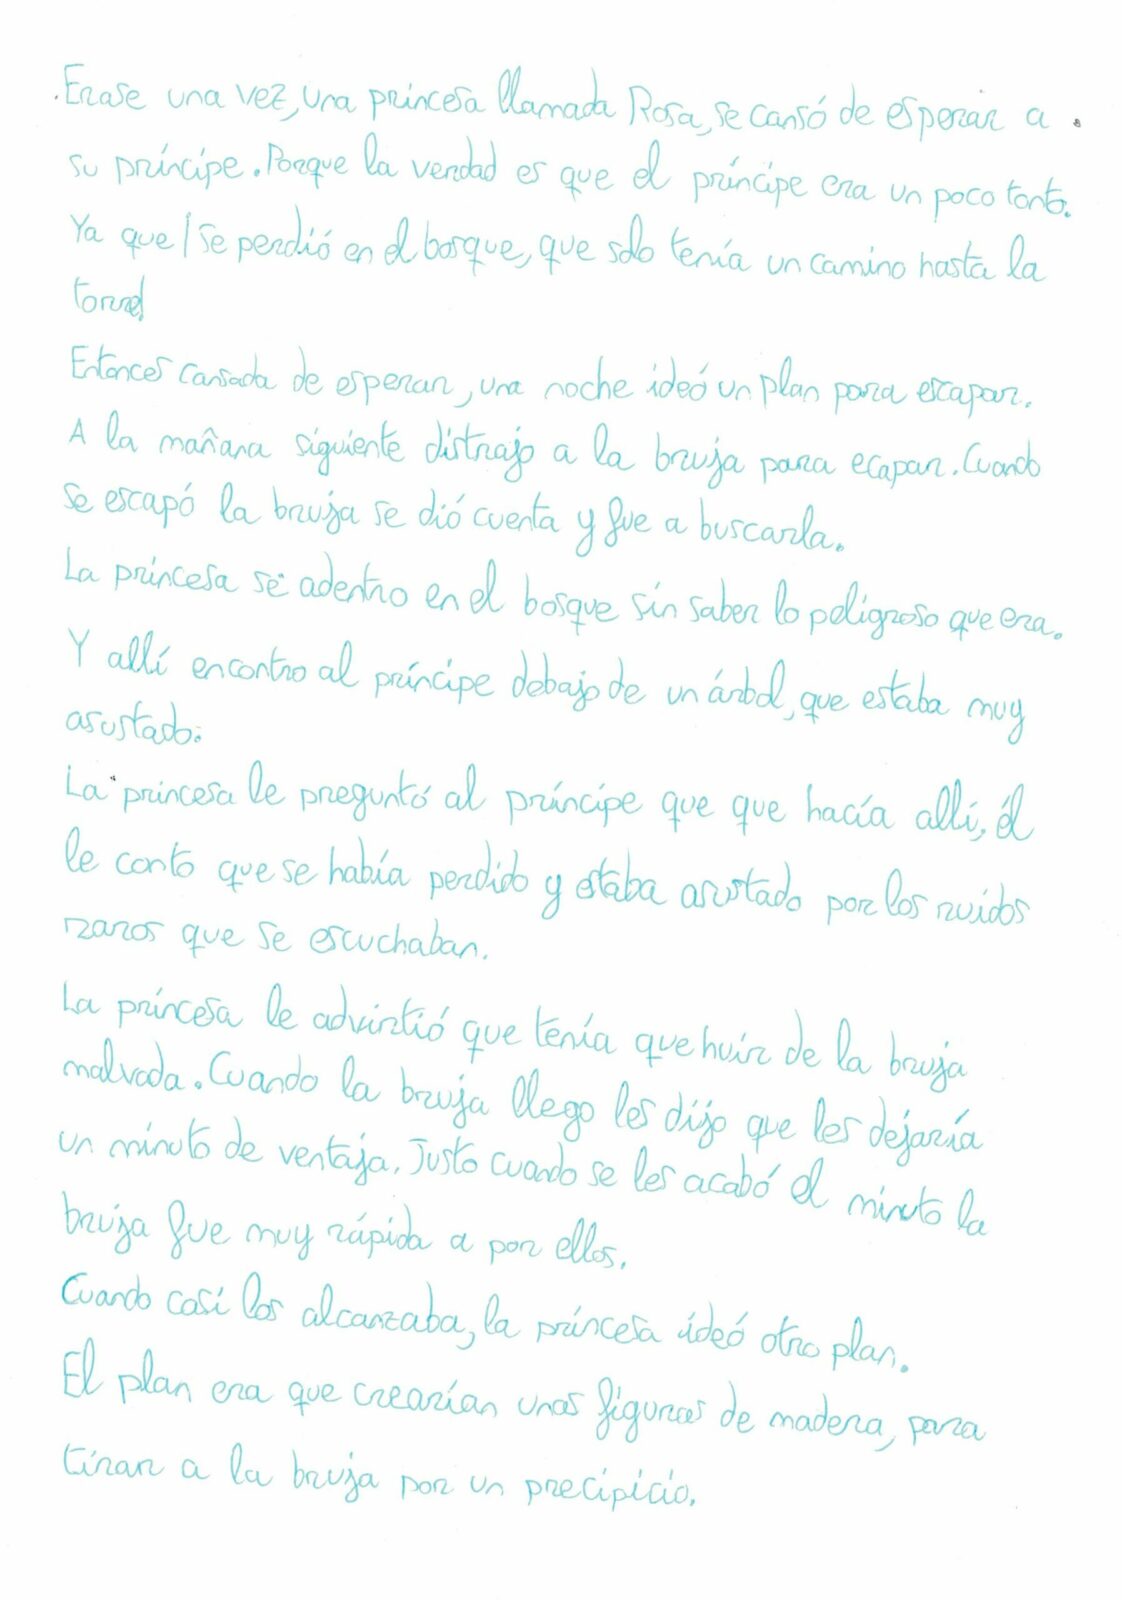 Erase una vez, una princesa llamada Rosa, se cansó de esperar a
su príncipe. Porque la verdad es que el príncipe era un poco tonto.
Ya que se perdió en el bosque, que solo tenía un camino hasta la
torre
Entonces cansada de esperar, una noche ideó un plan para escapar.
A la mañana siguiente distrajo a la bruja para ecapar. Cuando
se escapó la bruja se dió cuenta y fue a buscarla.
La princesa se adentro en el bosque sin saber lo peligroso que era.
Y allí encontro al príncipe debajo de un árbol, que estaba muy
asustado.
La princesa le preguntó al príncipe que que hacía allí, él
le conto que se había perdido y estaba asustado por los ruidos
raros que se escuchaban.
La princesa le advirtió que tenía que huir de la bruja
malvada. Cuando la bruja llego les dijo que les dejaría
un minuto de ventaja. Justo cuando se les acabó el minuto la
bruja fue muy rápida a por ellos.
Cuando casi los alcanzaba, la princesa ideó otro plan.
El plan era que crearían unas figuras de madera, para
tirar a la bruja por un precipicio.